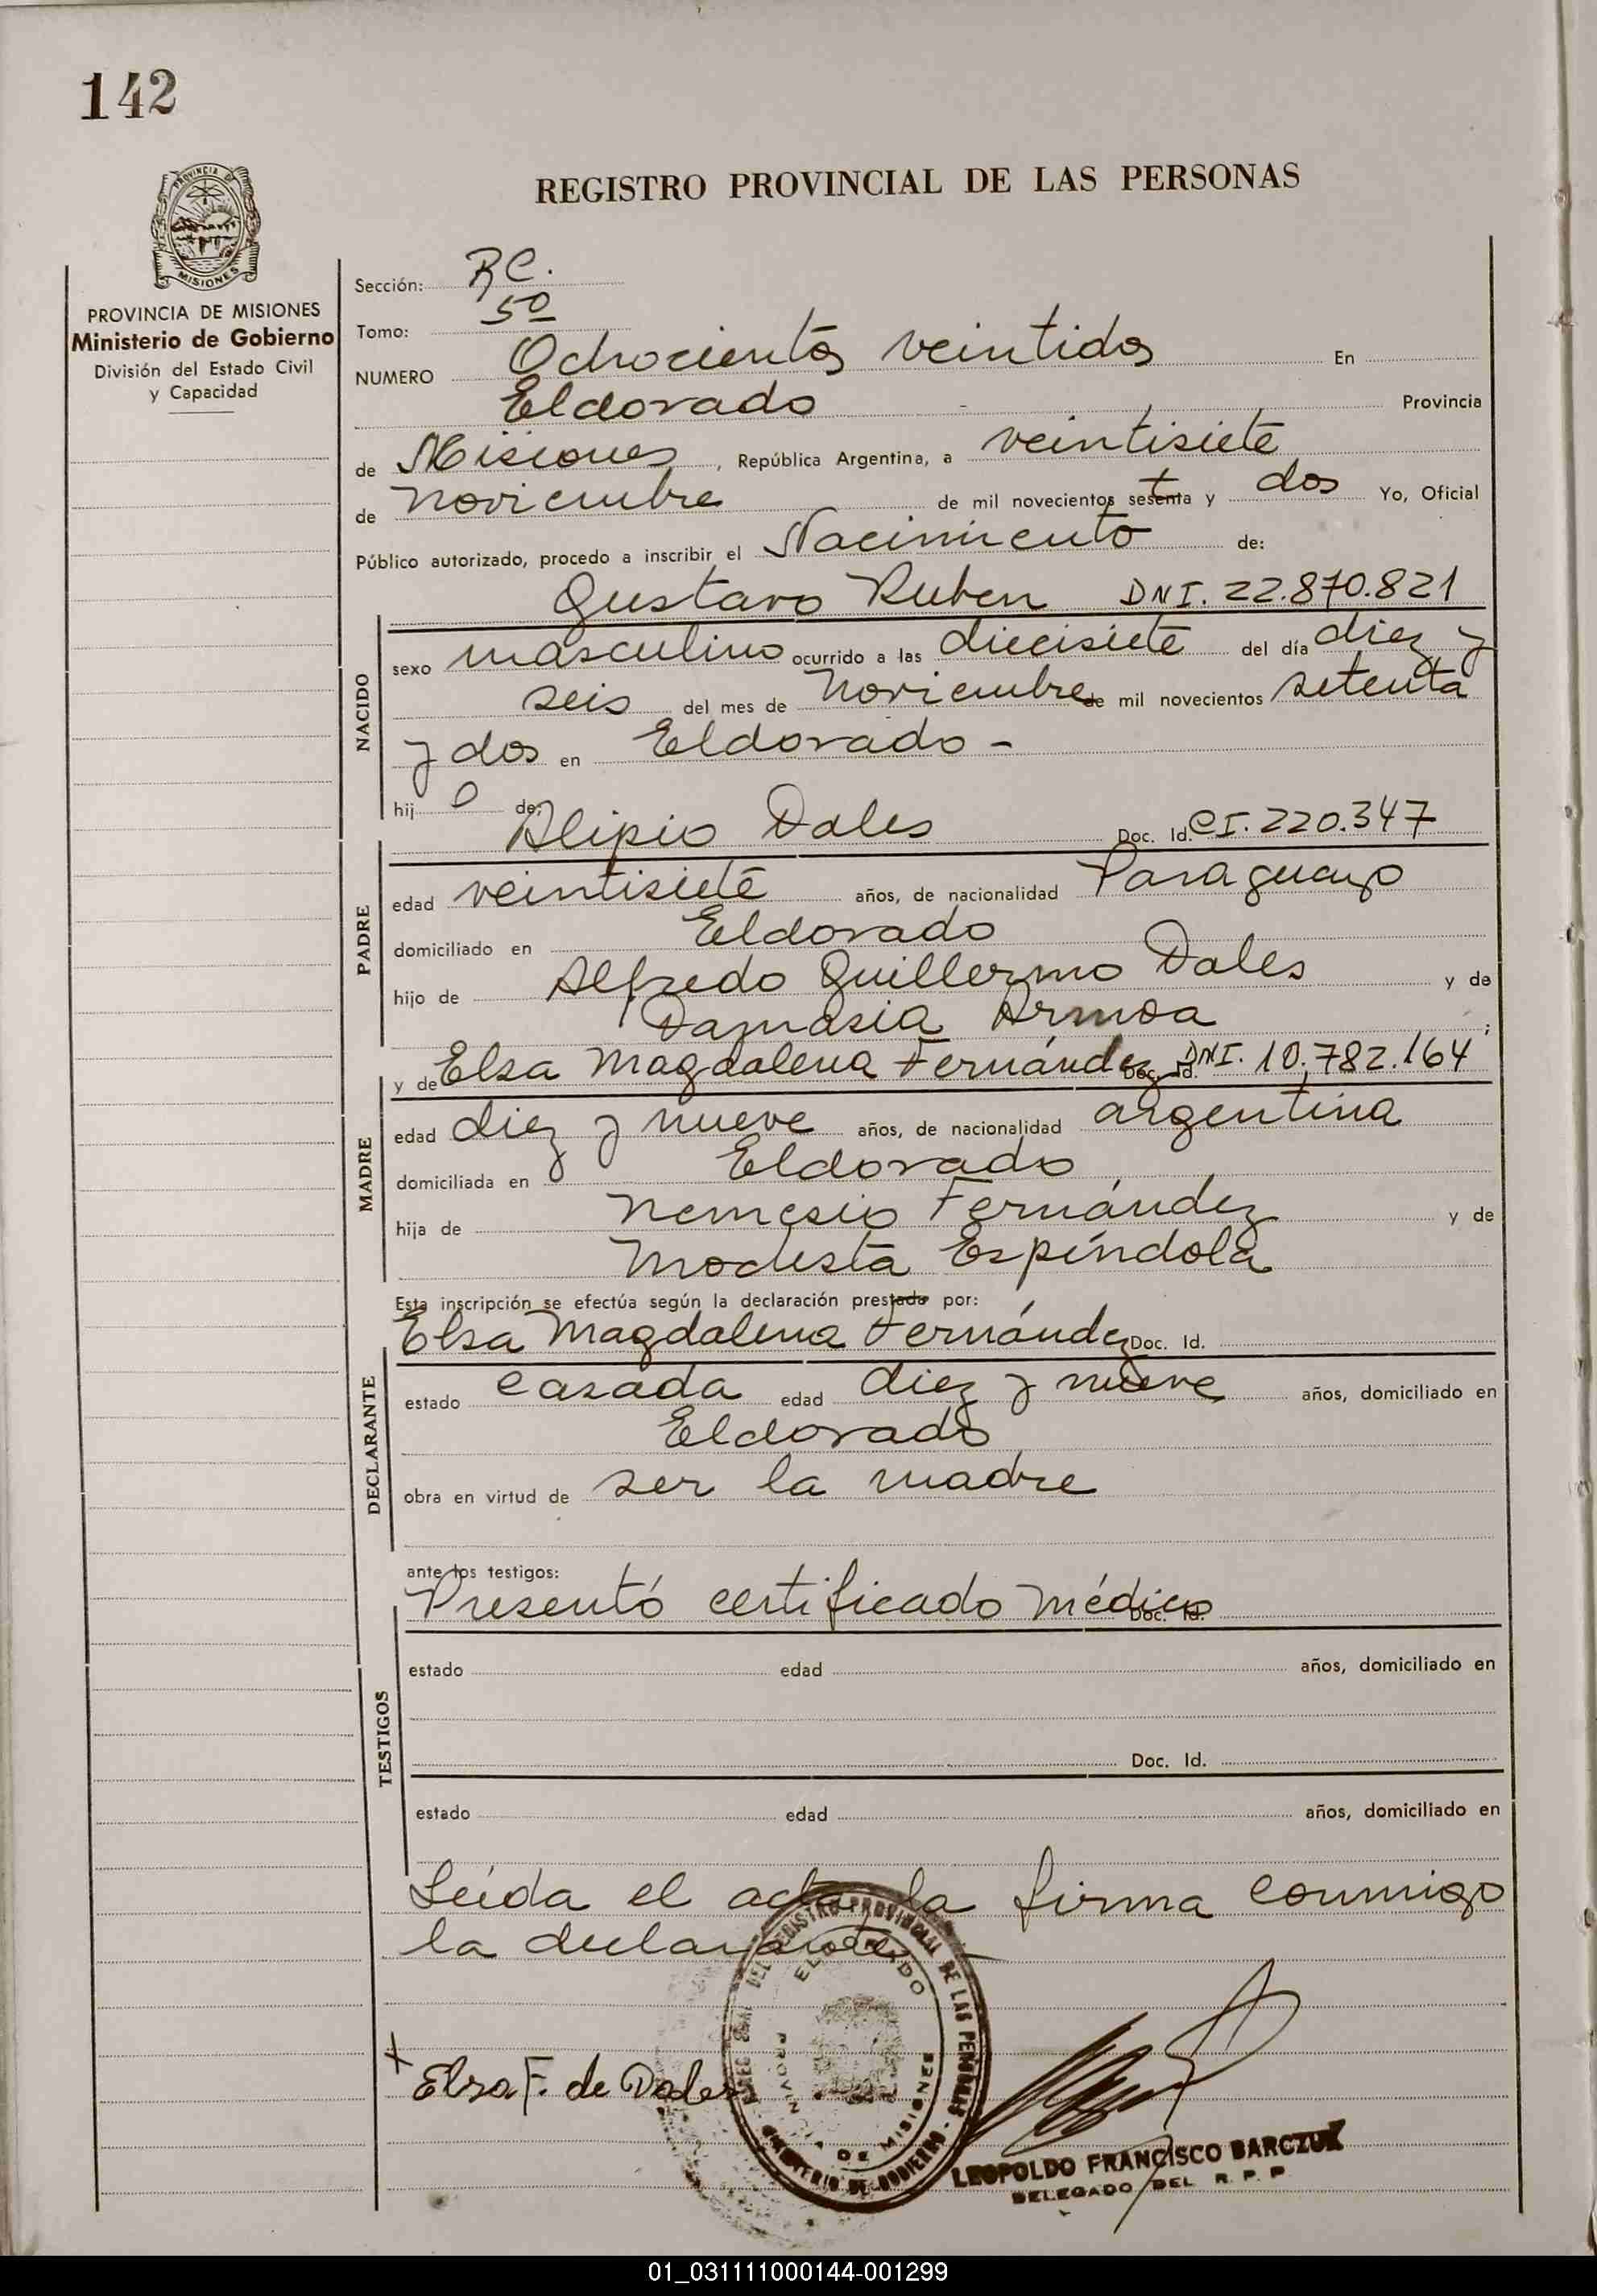 142
REGISTRO PROVINCIAL DE LAS PERSONAS
PROVINCIA DE MISIONES
PROVINCIA DE MISIONES
Ministerio de Gobierno
División del Estado Civil
y Capacidad
Sección: R.C.
Tomo: 5º
NUMERO Ochocientos veintidos En
Eldorado Provincia
de Misiones, República Argentina, a veintisiete
de noviembre de mil novecientos setenta y dos Yo, Oficial
Público autorizado, procedo a inscribir el Nacimiento de:
Gustavo Ruben DNI. 22.870.821
NACIDO
sexo masculino ocurrido a las diecisiete del día diez y
seis del mes de noviembre de mil novecientos setenta
y dos en Eldorado -
hij o de:
Alipio Dales Doc. Id. CI. 220.347
PADRE
edad veintisiete años, de nacionalidad Paraguayo
domiciliado en Eldorado
hijo de Alfredo Guillermo Dales y de
Damasia Armoa ;
y de Elsa Magdalena Fernández Doc. Id. DNI. 10.782.164
MADRE
edad diez y nueve años, de nacionalidad argentina
domiciliada en Eldorado
hija de Nemesio Fernández y de
Modesta Espíndola
Esta inscripción se efectúa según la declaración prestada por:
Elsa Magdalena Fernández Doc. Id.
DECLARANTE
estado casada edad diez y nueve años, domiciliado en
Eldorado
obra en virtud de ser la madre
ante los testigos:
Presentó certificado médico Doc. Id.
TESTIGOS
estado edad años, domiciliado en
Doc. Id.
estado edad años, domiciliado en
Leída el acta, la firma conmigo
la declarante. -
DEL REGISTRO PROVINCIAL DE LAS PERSONAS
ELDORADO
PROVINCIA DE MISIONES
MINISTERIO DE GOBIERNO
x Elsa F. de Dales
LEOPOLDO FRANCISCO BARCZUK
DELEGADO DEL R. P. P.
01_031111000144-001299